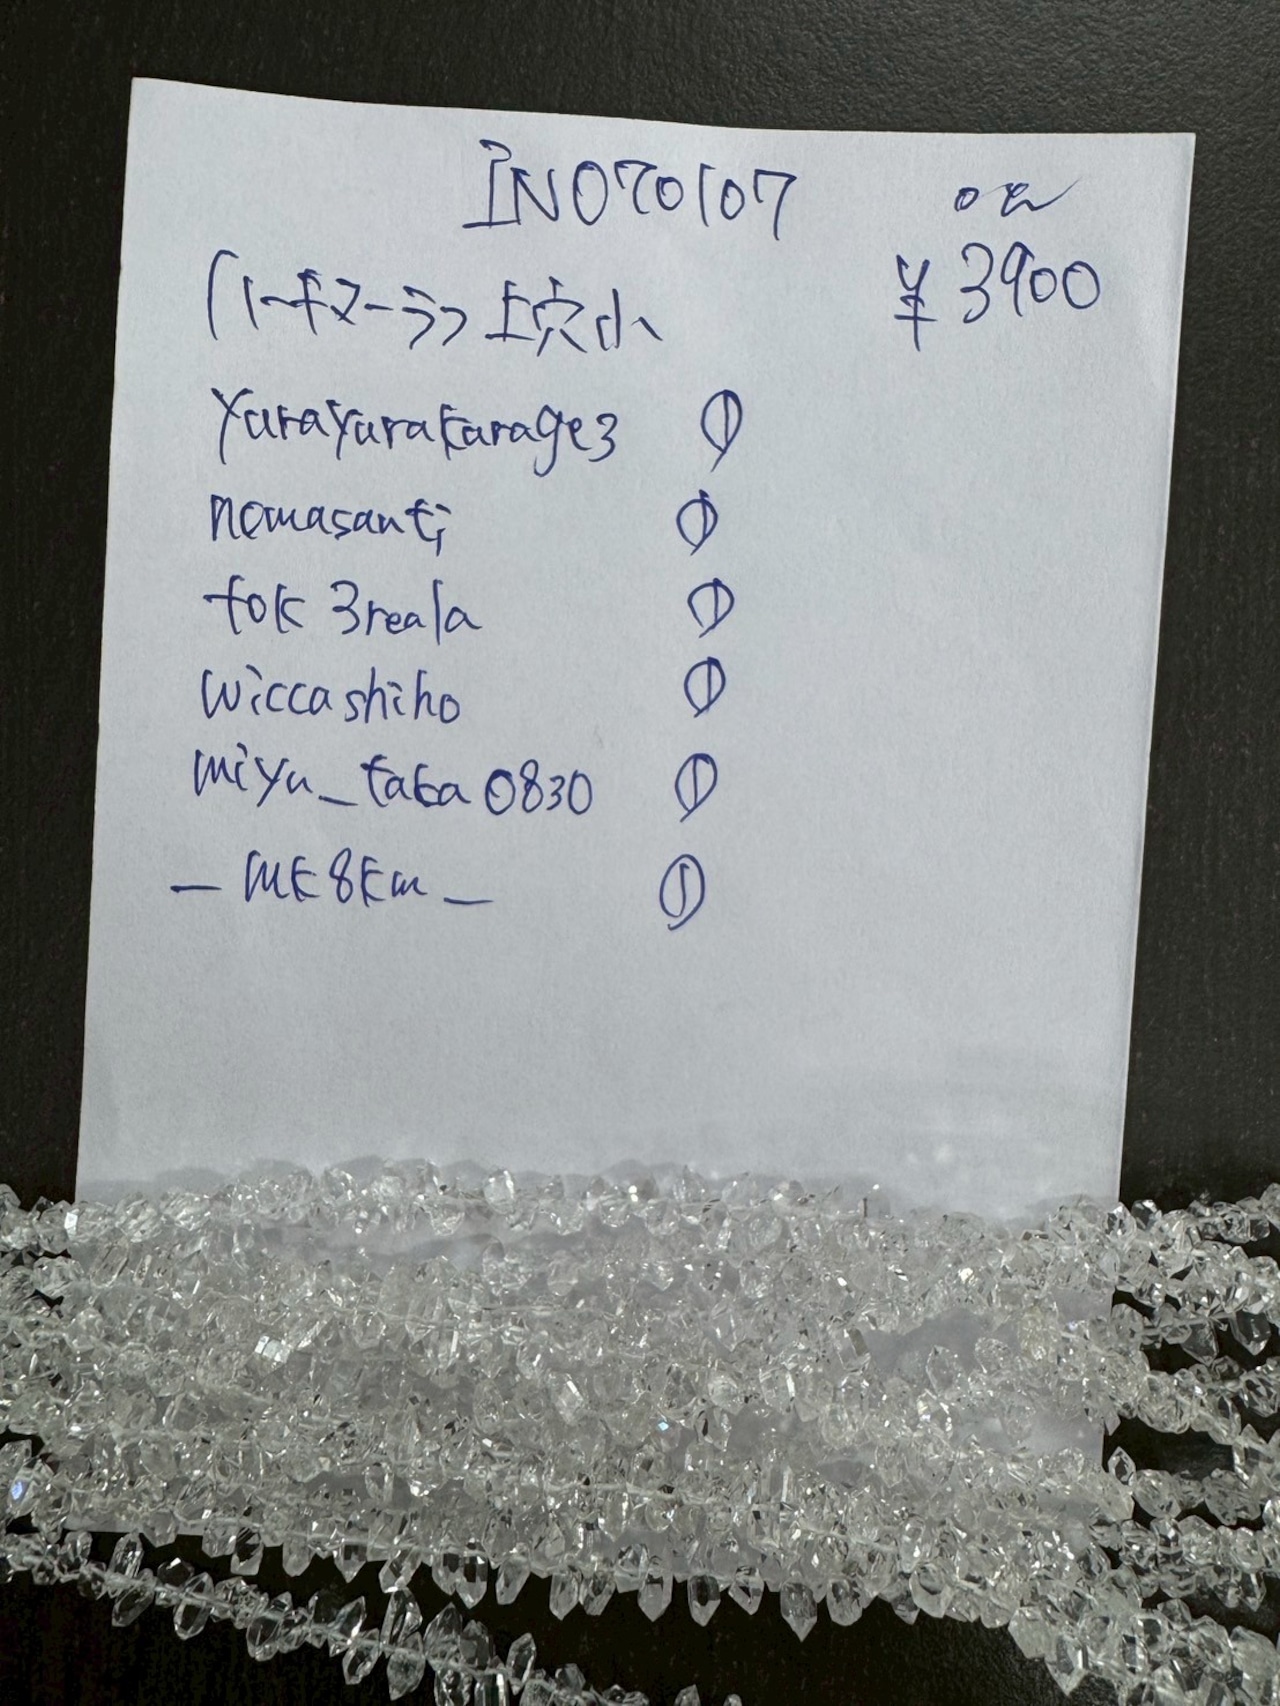 INO70107
¥3900
ハーキマーラフ 上穴小
yurayurakarage3 ①
nomasanti ①
tok3reala ①
wiccashiho ①
miyu_taka0830 ①
_mk8km_ ①